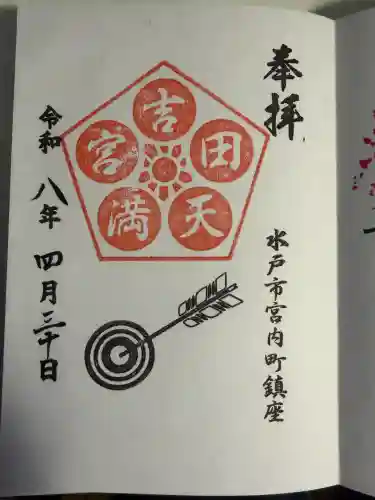 奉拝
水戸市宮内町鎮座
吉田天満宮
令和八年四月三十日